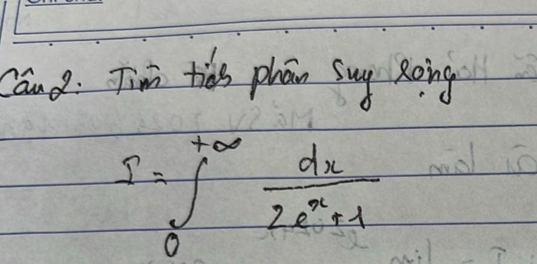 Câu 2: Tìm tích phân suy rộng
I = ∫₀^{+∞} dx / (2e^x + 1)